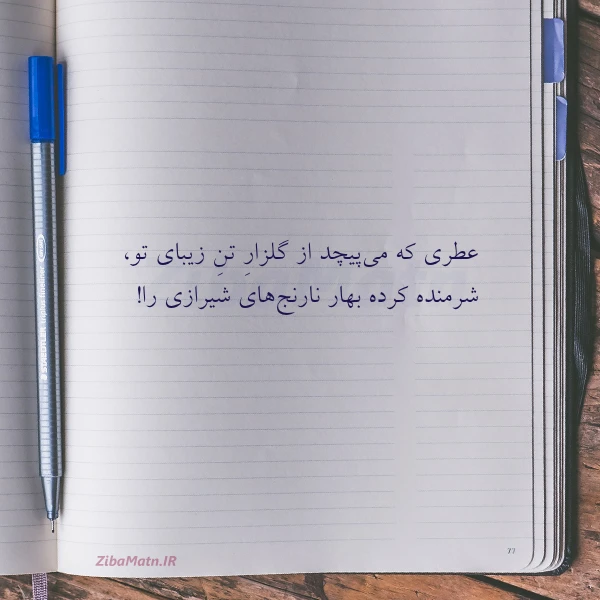 عطری که می‌پیچد از گلزارِ تنِ زیبای تو،
شرمنده کرده بهار نارنج‌های شیرازی را!
ZibaMatn.IR